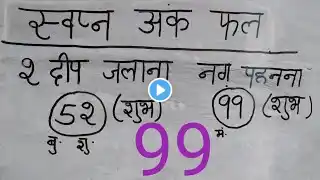 स्वप्न अंक फल
२ दीप जलाना नग पहनना
५२ (शुभ) ९९ (शुभ)
बु. शु. मं.
99